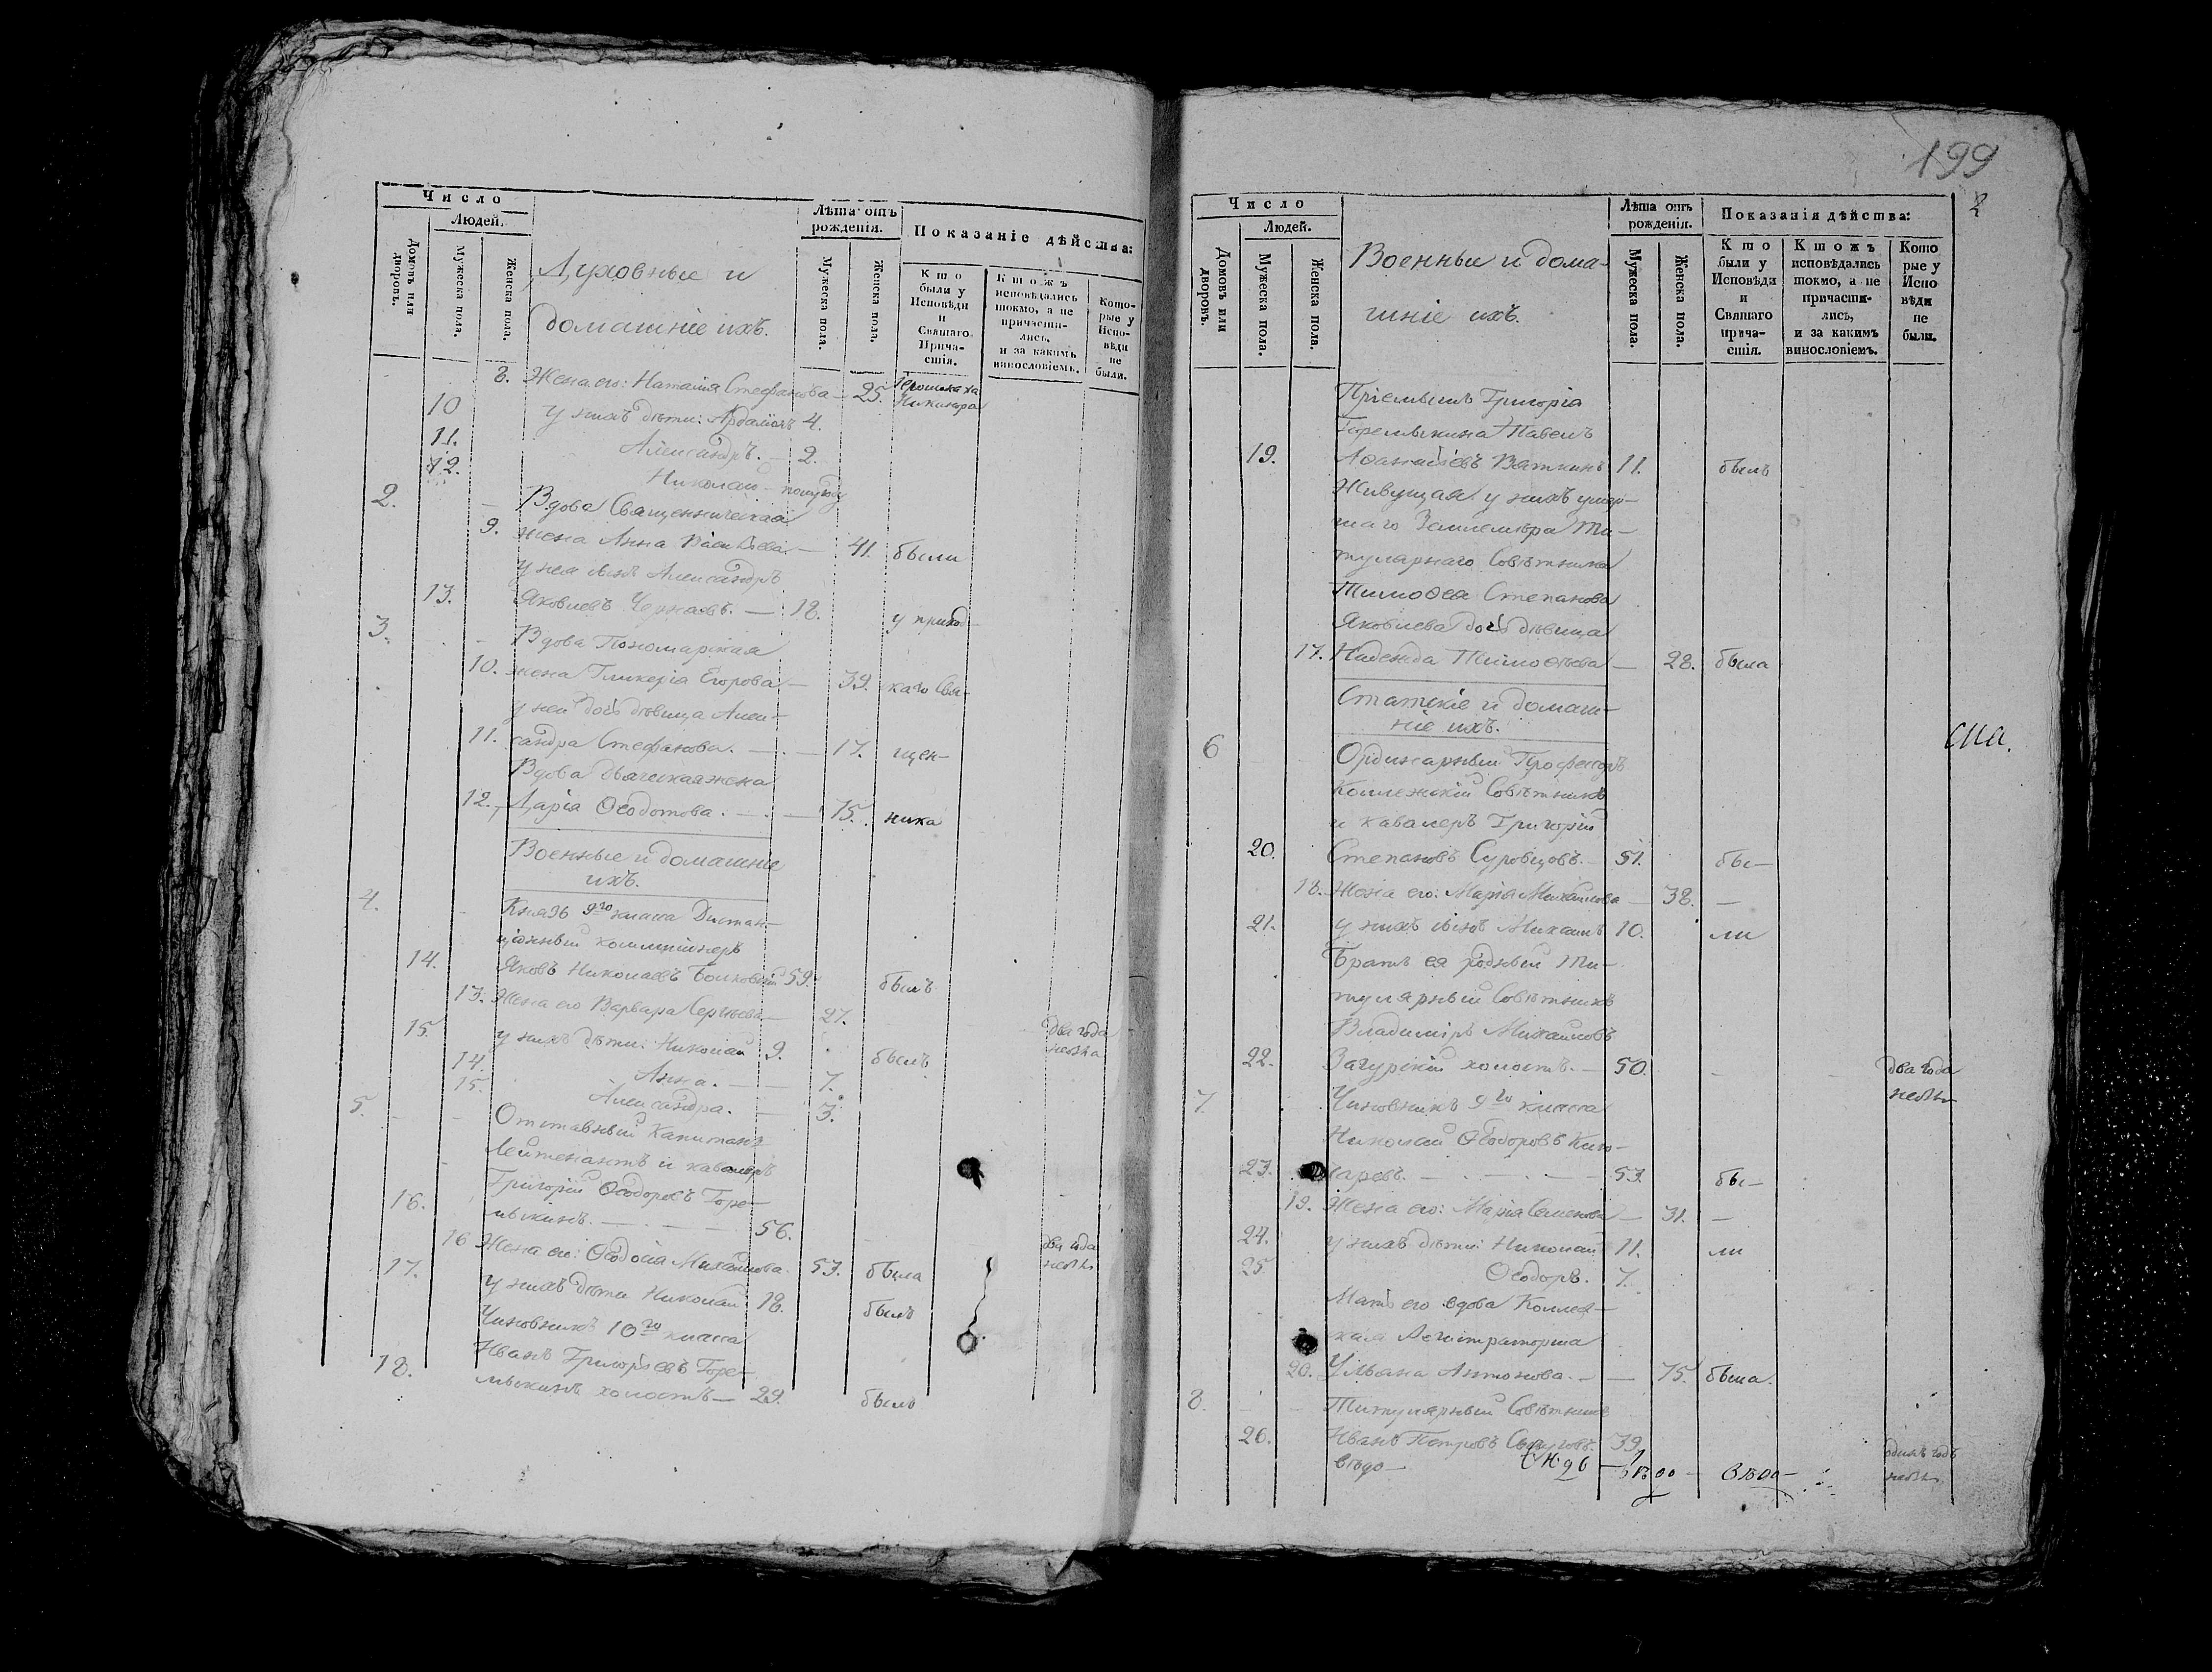 Число
Людей.
Домовъ или дворовъ.
Мужеска пола.
Женска пола.
Духовные и
домашніе ихъ.
Лѣта отъ рожденія.
Мужеска пола.
Женска пола.
Показаніе дѣйства:
Кто были у Исповѣди и Святаго Причастія.
Ктожъ исповѣдались токмо, а не причастились, и за какимъ винословіемъ.
Которые у Исповѣди не были.
8. Жена его: Наталія Стефанова — 25.
10 у нихъ дѣти: 4.
11. Александръ. — 2.
12. Николай — полугоду
2. Вдова Священническая
9. жена Анна Васильева — 41. были
у нея сынъ Александръ
13. Яковлевъ — 18. у приход-
3. Вдова Пономарская
10. жена Гликерія Егорова — 39. скаго Свя-
у ней дочь дѣвица Алек-
11. сандра Стефанова. — 17. щен-
Вдова дьяческая жена
12. Дарія Ѳеодотова. — 75. ника
Военные и домашніе
ихъ.
4. Князь 9го класса Дистан-
ціонный коммисіонеръ
14. Яковъ Николаевъ 59. былъ
13. Жена его Варвара Сергѣева — 27. два года небыла
15. у нихъ дѣти: Николай 9. былъ
14. Анна. — 7.
15. Александра. — 3.
5. Отставный Капитанъ
Лейтенантъ и кавалеръ
Григорій Ѳеодоровъ Горе-
16. мыкинъ. — 56. два года небылъ
16 Жена его: Ѳеодосія Михайлова 53. была
17. у нихъ дѣти Николай 18. былъ
Чиновникъ 10го класса
Иванъ Григорьевъ Горе-
18. мыкинъ холостъ — 29. былъ
199
2
Число
Людей.
Домовъ или дворовъ.
Мужеска пола.
Женска пола.
Военные и дома-
шніе ихъ.
Лѣта отъ рожденія.
Мужеска пола.
Женска пола.
Показанія дѣйства:
Кто были у Исповѣди и Святаго причастія.
Ктожъ исповѣдались токмо, а не причастились, и за какимъ винословіемъ.
Которые у Исповѣди не были.
Пріемышъ Григорія
Горемыкина Павелъ
19. Аѳанасіевъ Вяткинъ 11. былъ
Живущая у нихъ умер-
шаго Землемѣра Ти-
тулярнаго Совѣтника
Тимоѳея Степанова
Яковлева дочь дѣвица
17. Надежда Тимоѳеева — 28. была
Статскіе и домаш-
ніе ихъ.
6 Ординарный Профессоръ
Коллежскій Совѣтникъ
и кавалеръ Григорій
20. Степановъ Суровцовъ. — 51. бы-
18. Жена его: Марія Михайлова — 38. —
21. у нихъ сынъ Михаилъ 10. ли
Братъ ея родный Ти-
тулярный Совѣтникъ
Владиміръ Михайловъ
22. Загурскій холостъ. — 50. два года небылъ
7. Чиновникъ 9го класса
Николай Ѳеодоровъ
23. — 53. бы-
19. Жена его: Марія Семенова — 31. —
24. у нихъ дѣти: Николай 11. ли
25 Ѳеодоръ. 7.
Мать его вдова Коллеж-
ская Регистраторша
20. Ульяна Антонова. — 75. была.
8. Титулярный Совѣтникъ
26. Иванъ Петровъ 39. одинъ годъ небылъ